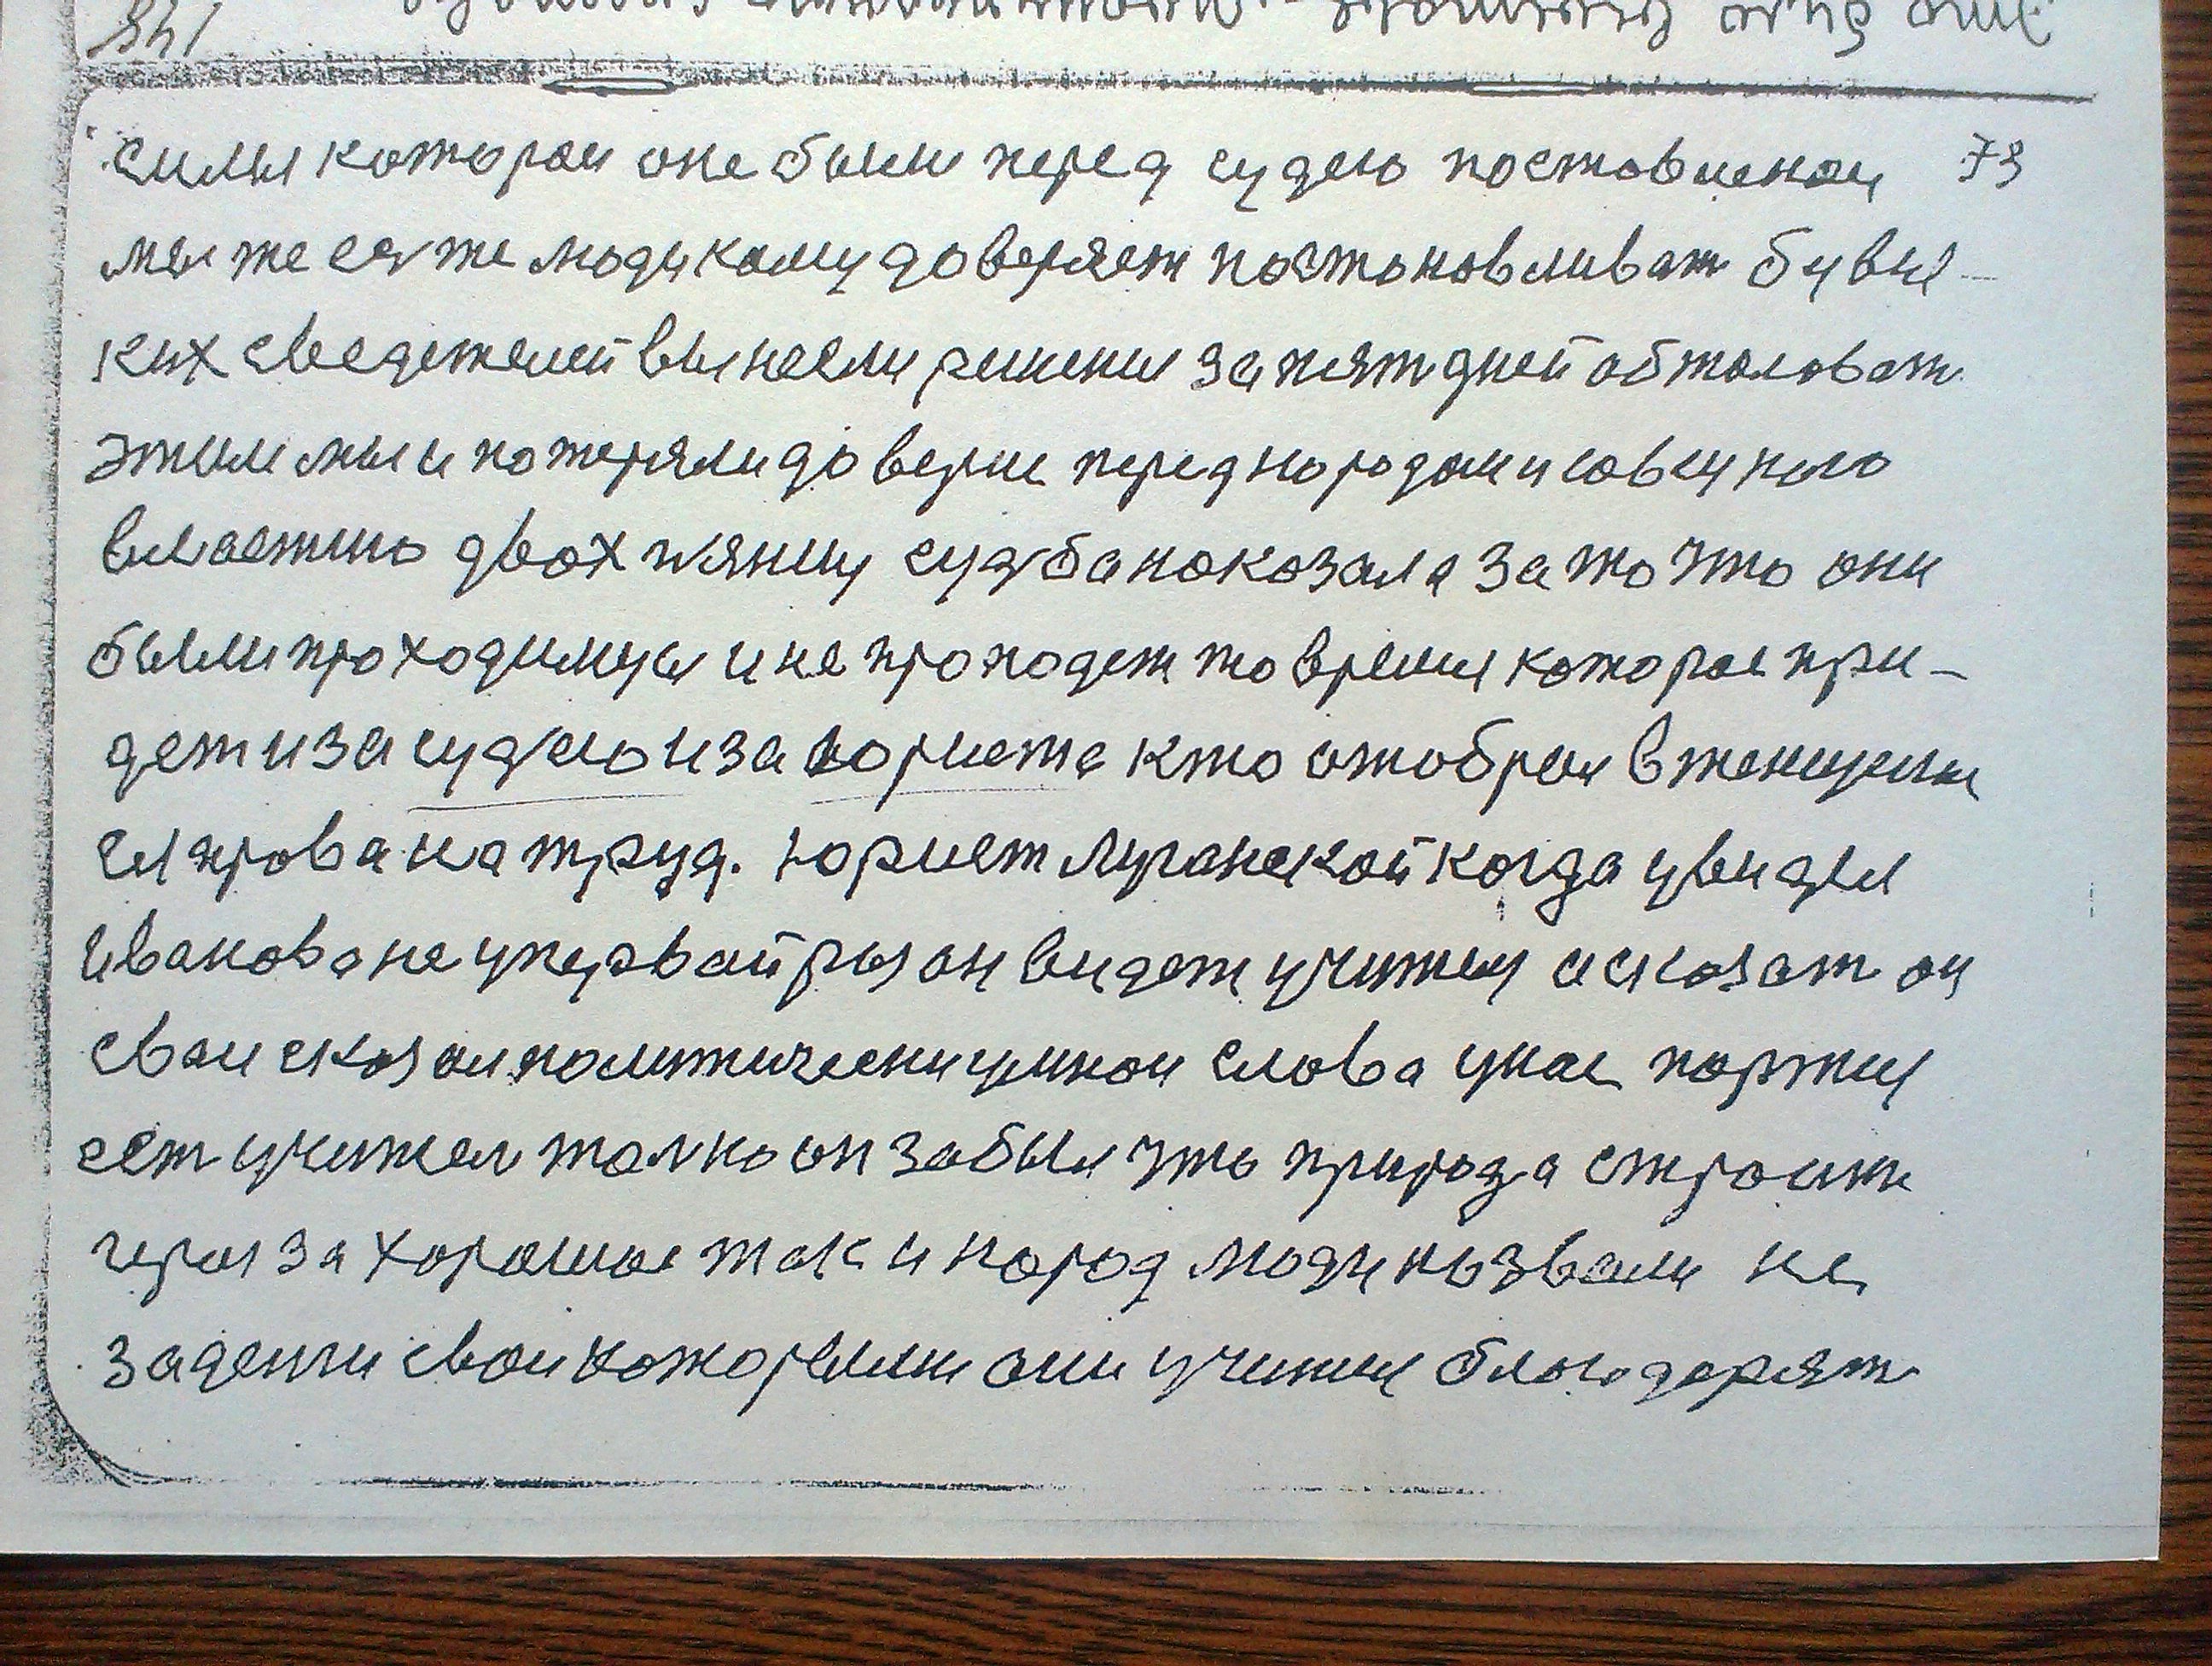 силы которои оне были перед судею поставленои 79
мы же судже люди кому доверяет постоновливат бувše-
ких сведетелей вынесли решения за пят дней обжаловат
этим мы и потеряли доверие перед народом и совецкою
властию двох пяниц судба наказала за то что они
были проходимцы и не проподет то время которое при-
дет и за судею и за юриста кто отобрал в женщины
ея права на труд. Юрист Луганской когда увидел
Иванова не у первай раз он видет учителя а сказат он
сваи сказал политически умнои слова у нас партия
ест учител толко он забыл что природа строить
героя за хорошое так и народ люди назвали не
за денги сваи которими они учителя благодарят